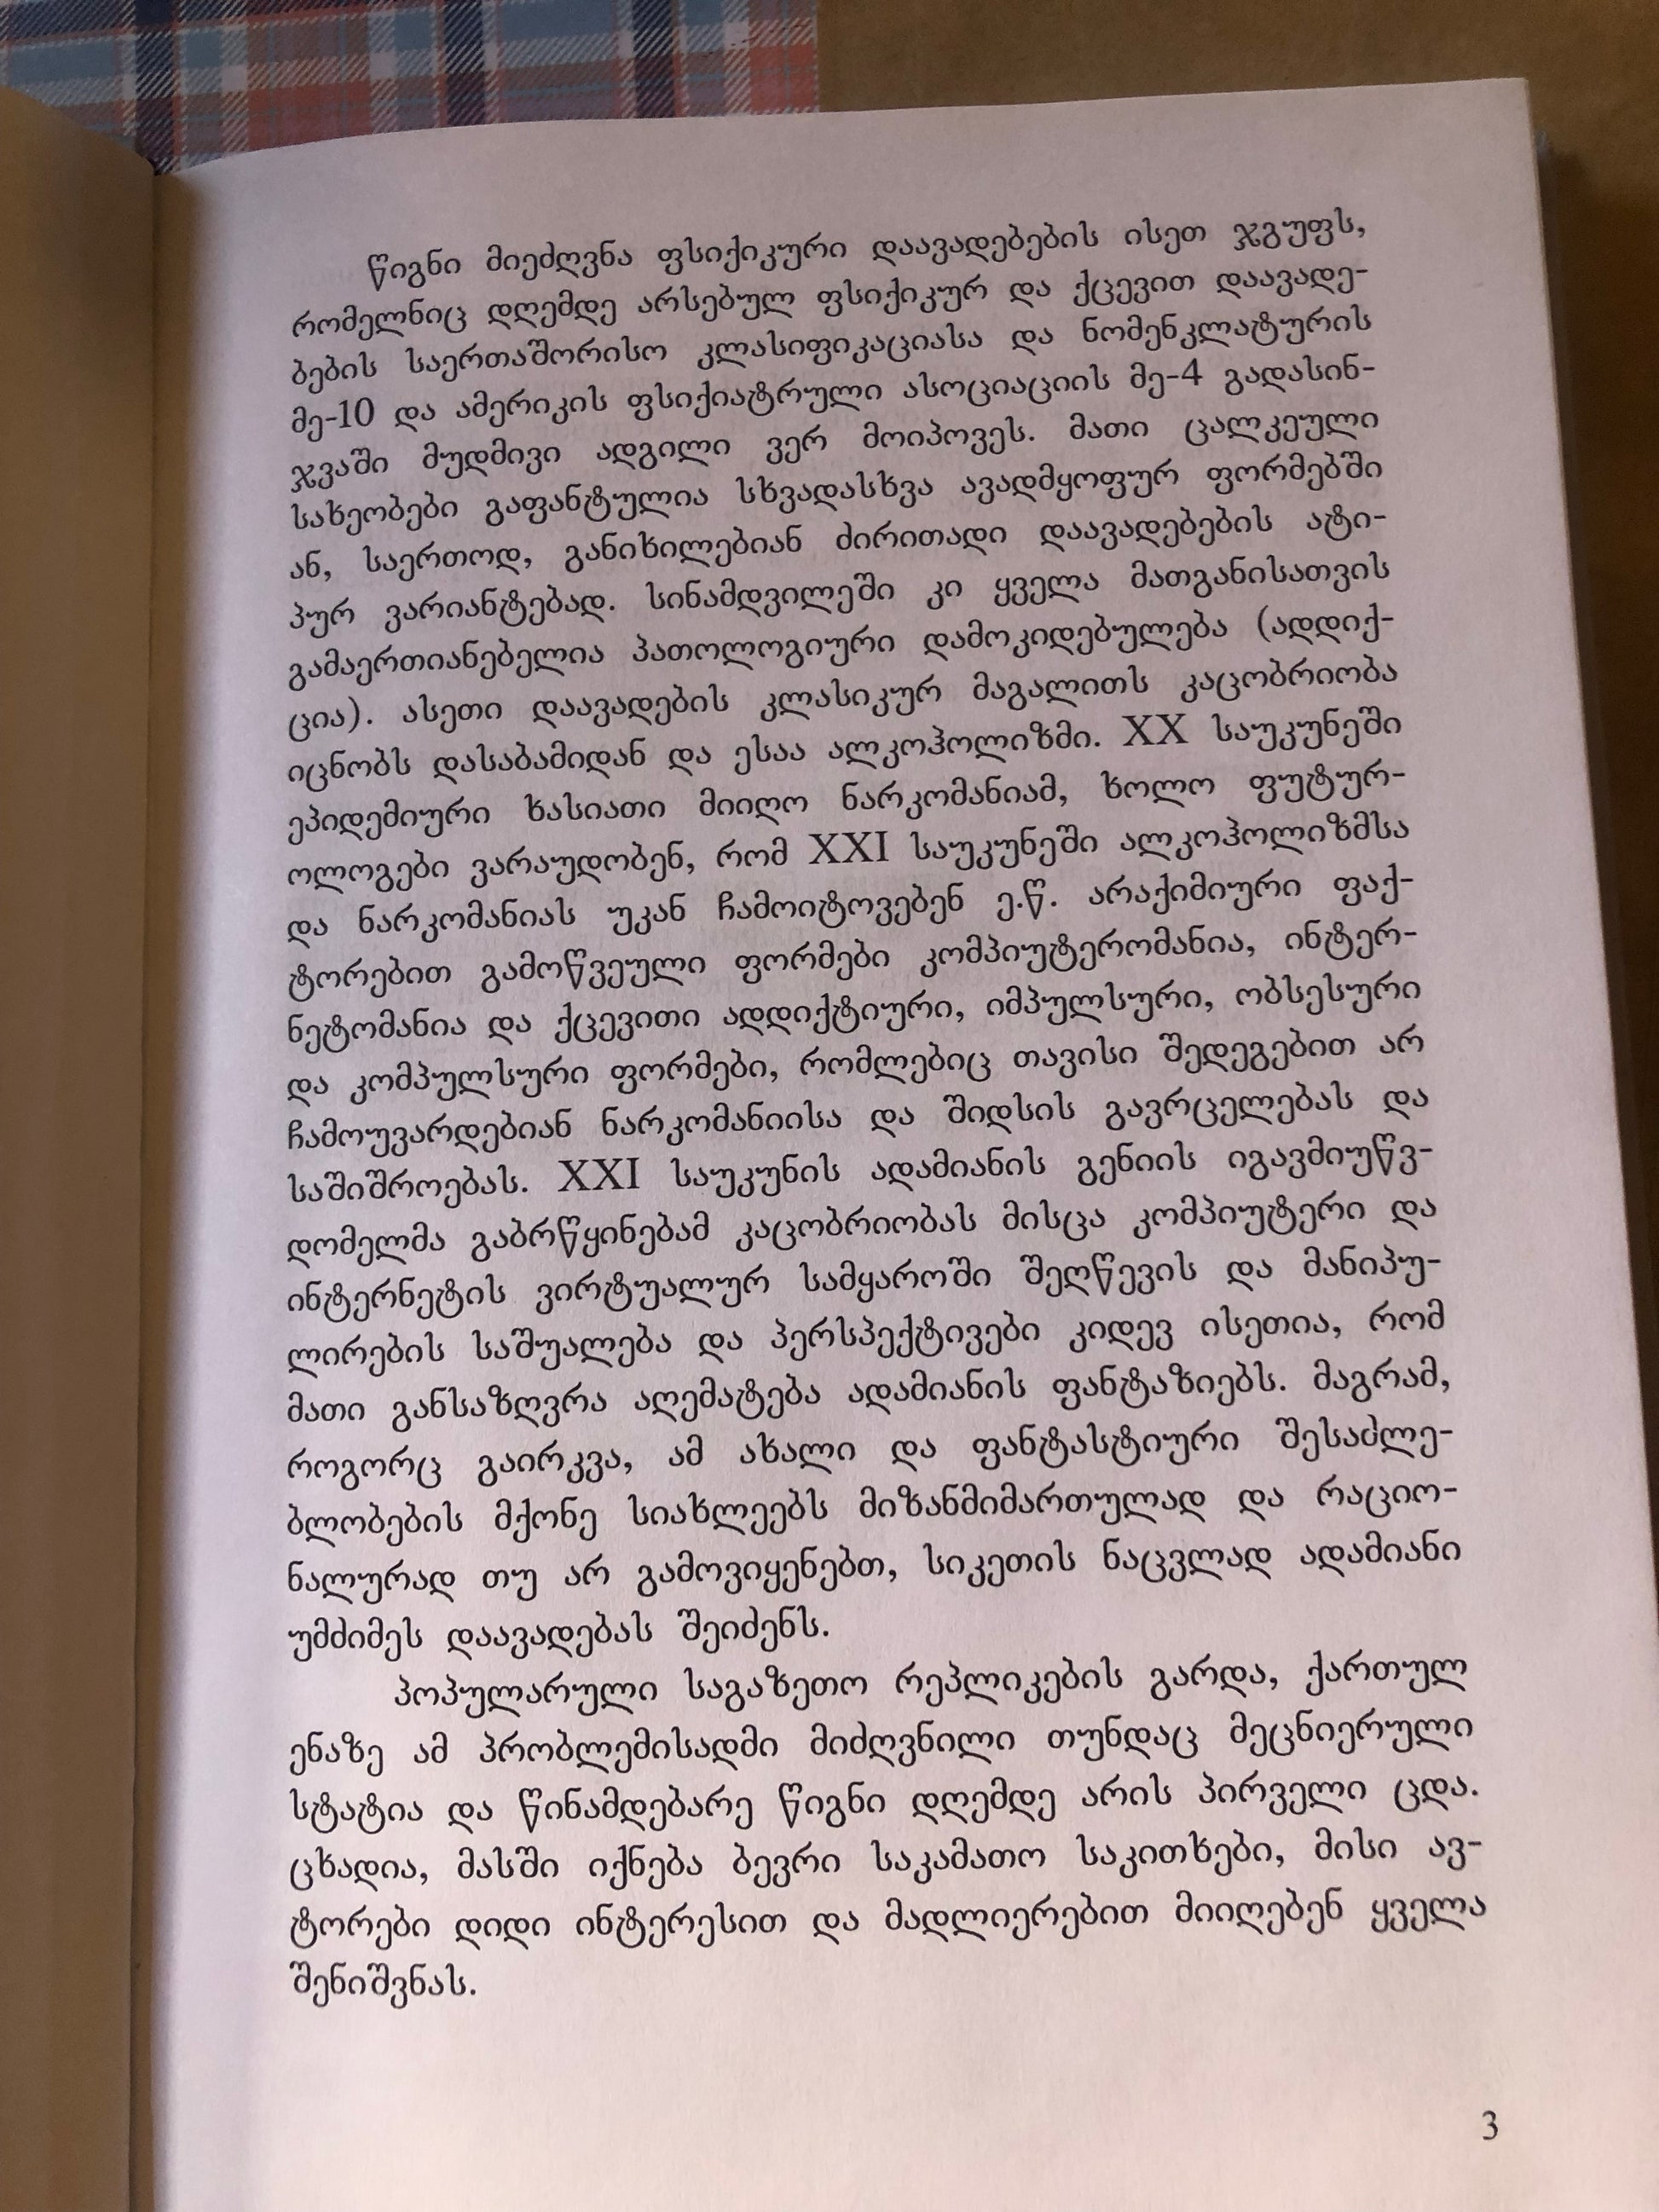 წიგნი მიეძღვნა ფსიქიკური დაავადებების ისეთ ჯგუფს,
რომელნიც დღემდე არსებულ ფსიქიკურ და ქცევით დაავადე-
ბების საერთაშორისო კლასიფიკაციასა და ნომენკლატურის
მე-10 და ამერიკის ფსიქიატრული ასოციაციის მე-4 გადასინ-
ჯვაში მუდმივი ადგილი ვერ მოიპოვეს. მათი ცალკეული
სახეობები გაფანტულია სხვადასხვა ავადმყოფურ ფორმებში
ან, საერთოდ, განიხილებიან ძირითადი დაავადებების ატი-
პურ ვარიანტებად. სინამდვილეში კი ყველა მათგანისათვის
გამაერთიანებელია პათოლოგიური დამოკიდებულება (ადდიქ-
ცია). ასეთი დაავადების კლასიკურ მაგალითს კაცობრიობა
იცნობს დასაბამიდან და ესაა ალკოჰოლიზმი. XX საუკუნეში
ეპიდემიური ხასიათი მიიღო ნარკომანიამ, ხოლო ფუტურ-
ოლოგები ვარაუდობენ, რომ XXI საუკუნეში ალკოჰოლიზმსა
და ნარკომანიას უკან ჩამოიტოვებენ ე.წ. არაქიმიური ფაქ-
ტორებით გამოწვეული ფორმები კომპიუტერომანია, ინტერ-
ნეტომანია და ქცევითი ადდიქტიური, იმპულსური, ობსესური
და კომპულსური ფორმები, რომლებიც თავისი შედეგებით არ
ჩამოუვარდებიან ნარკომანიისა და შიდსის გავრცელებას და
საშიშროებას. XXI საუკუნის ადამიანის გენიის იგავმიუწვ-
დომელმა გაბრწყინებამ კაცობრიობას მისცა კომპიუტერი და
ინტერნეტის ვირტუალურ სამყაროში შეღწევის და მანიპუ-
ლირების საშუალება და პერსპექტივები კიდევ ისეთია, რომ
მათი განსაზღვრა აღემატება ადამიანის ფანტაზიებს. მაგრამ,
როგორც გაირკვა, ამ ახალი და ფანტასტიური შესაძლე-
ბლობების მქონე სიახლეებს მიზანმიმართულად და რაციო-
ნალურად თუ არ გამოვიყენებთ, სიკეთის ნაცვლად ადამიანი
უმძიმეს დაავადებას შეიძენს.
პოპულარული საგაზეთო რეპლიკების გარდა, ქართულ
ენაზე ამ პრობლემისადმი მიძღვნილი თუნდაც მეცნიერული
სტატია და წინამდებარე წიგნი დღემდე არის პირველი ცდა.
ცხადია, მასში იქნება ბევრი საკამათო საკითხები, მისი ავ-
ტორები დიდი ინტერესით და მადლიერებით მიიღებენ ყველა
შენიშვნას.
3